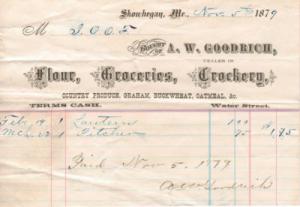 Skowhegan, Me. Nov. 5th 1879
M I.O.O.F.
Bought of A. W. GOODRICH,
DEALER IN
Flour, Groceries, Crockery,
COUNTRY PRODUCE, GRAHAM, BUCKWHEAT, OATMEAL, &c.
TERMS CASH. Water Street.
Feb 19 1 Lantern 1.00
1 Pitcher 95 1,95
Paid Nov 5. 1879
A W Goodrich